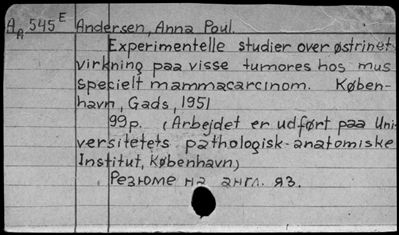 AA 545E Andersen, Anna Poul.
Experimentelle studier over østrinet
virkning paa visse tumores hos mus
specielt mammacarcinom. Køben-
havn, Gads, 1951
99p. (Arbejdet er udført paa Uni-
versitetets pathologisk-anatomiske
Institut, København)
Резюме на англ. яз.